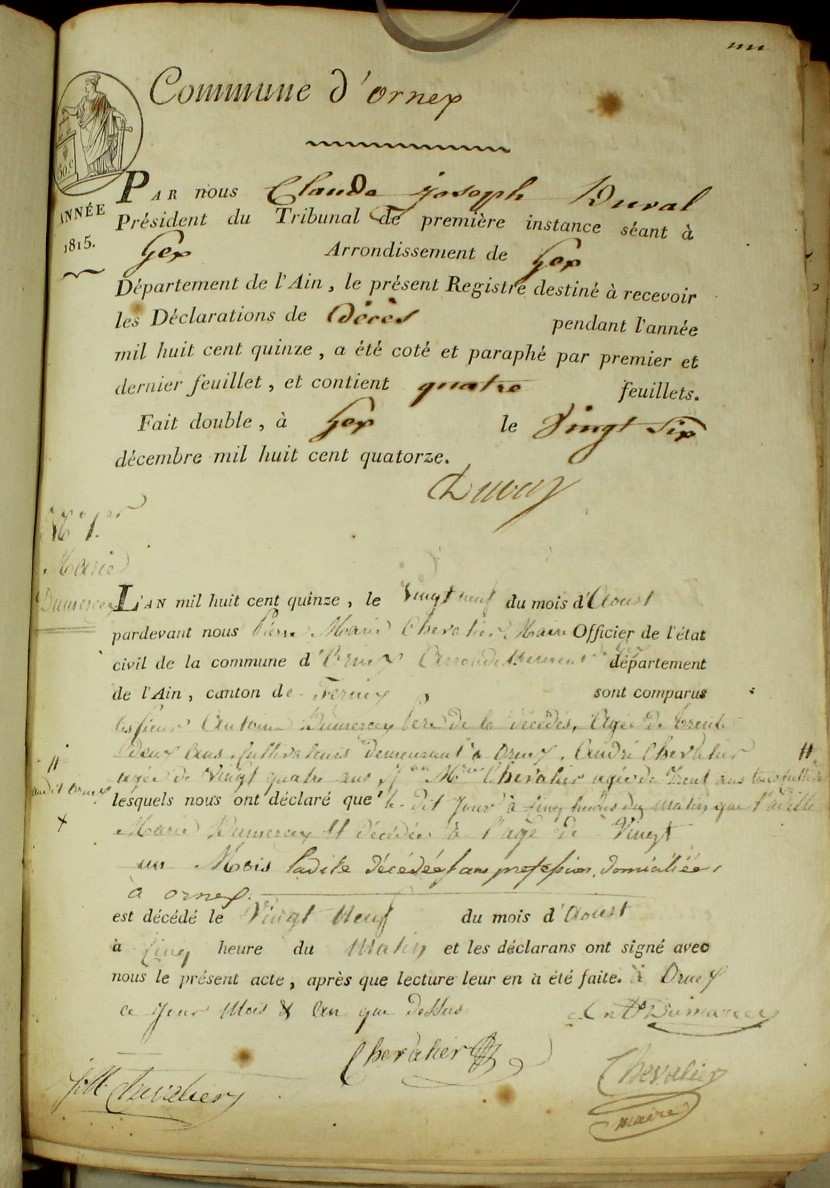 Commune d'ornex
ANNÉE
1815.
PAR nous Claude joseph Duval
Président du Tribunal de première instance séant à
Gex Arrondissement de Gex
Département de l'Ain, le présent Registre destiné à recevoir
les Déclarations de Décès pendant l'année
mil huit cent quinze, a été coté et paraphé par premier et
dernier feuillet, et contient quatre feuillets.
Fait double, à Gex le Vingt Six
décembre mil huit cent quatorze.
Duval
Marie
Dumercey
L'AN mil huit cent quinze, le Vingt neuf du mois d'Aoust
pardevant nous Pierre Marie Chevalier Maire Officier de l'état
civil de la commune d'Ornex Arrondissement de Gex département
de l'Ain, canton de Fernex sont comparus
les sieur Antoine Dumercey Pere de la décédés, Agée de trente
deux ans Cultivateurs demeurant à Ornex, André Chevalier
agée de Vingt quatre ans, Chevalier agée de Trent ans
audit Ornex
lesquels nous ont déclaré que le dit Jour à Cinq heures du matin que
Marie Dumercey décédée à l'age de Vingt
un Mois ladite décédée sans profession, domiciliée
à ornex.
est décédé le Vingt Neuf du mois d'Aoust
à Cinq heure du Matin et les déclarans ont signé avec
nous le présent acte, après que lecture leur en a été faite. à Ornex
ce Jour Mois & An que dessus
Dumarcey
Chevalier
Chevalier
Chevalier
maire